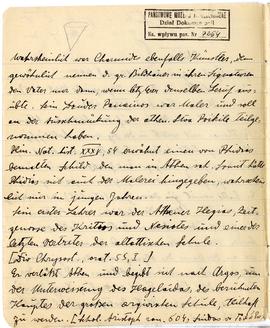 PAŃSTWOWE MUZEUM
Dział Dokumentacji
Nr. wpływu poz. Nr 7064
wahrscheinlich war Charmides ebenfalls Künstler, denn
gewöhnlich nennen d. gr. Bildhauer in ihren Signaturen
den Vater nur dann, wenn letzterer denselben Beruf aus-
übte. Sein Bruder Panainos war Maler und soll
an der Ausschmückung der athen. Stoa Poikile teilge-
nommen haben.
Plin. Nat. hist. XXXV, 54 erwähnt einen von Phidias
gemalten Schild, den man in Athen sah. Somit hätte
Phidias sich auch der Malerei hingegeben, wahrschein-
lich nur in jungen Jahren.
Sein erster Lehrer war der Athener Hegias, Zeit-
genosse des Kritios und Nesiotes und einer der
letzten Vertreter der altattischen Schule.
[Dio Chrysost. orat. 55, 1.]
Er verläßt Athen und begibt sich nach Argos, um
der Unterweisung des Hagelaidas, des berühmten
Hauptes der großen argivischen Schule, teilhaft
zu werden. [Schol. Aristoph. ran. 504;